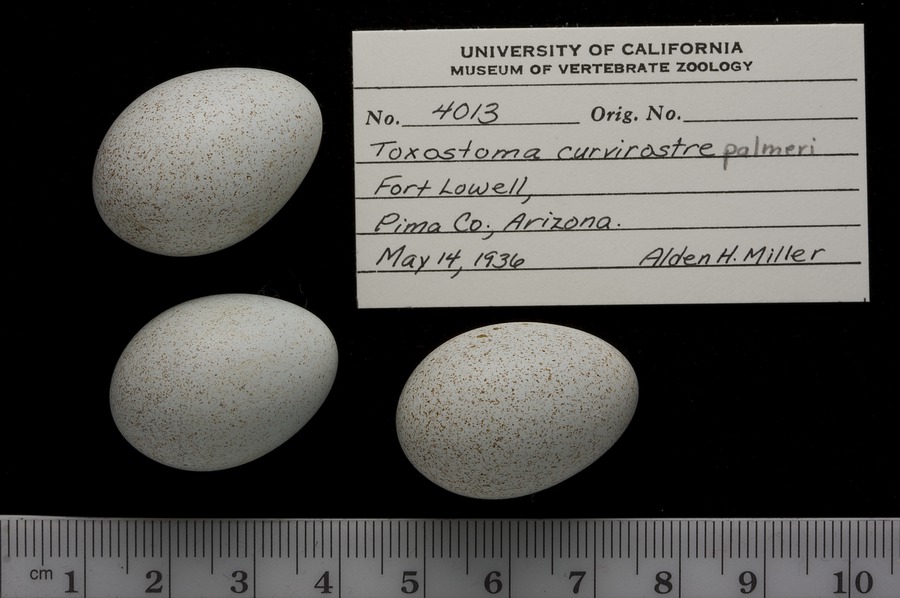 UNIVERSITY OF CALIFORNIA
MUSEUM OF VERTEBRATE ZOOLOGY
No. 4013 Orig. No.
Toxostoma curvirostre palmeri
Fort Lowell,
Pima Co., Arizona.
May 14, 1936 Alden H. Miller
cm 1 2 3 4 5 6 7 8 9 10